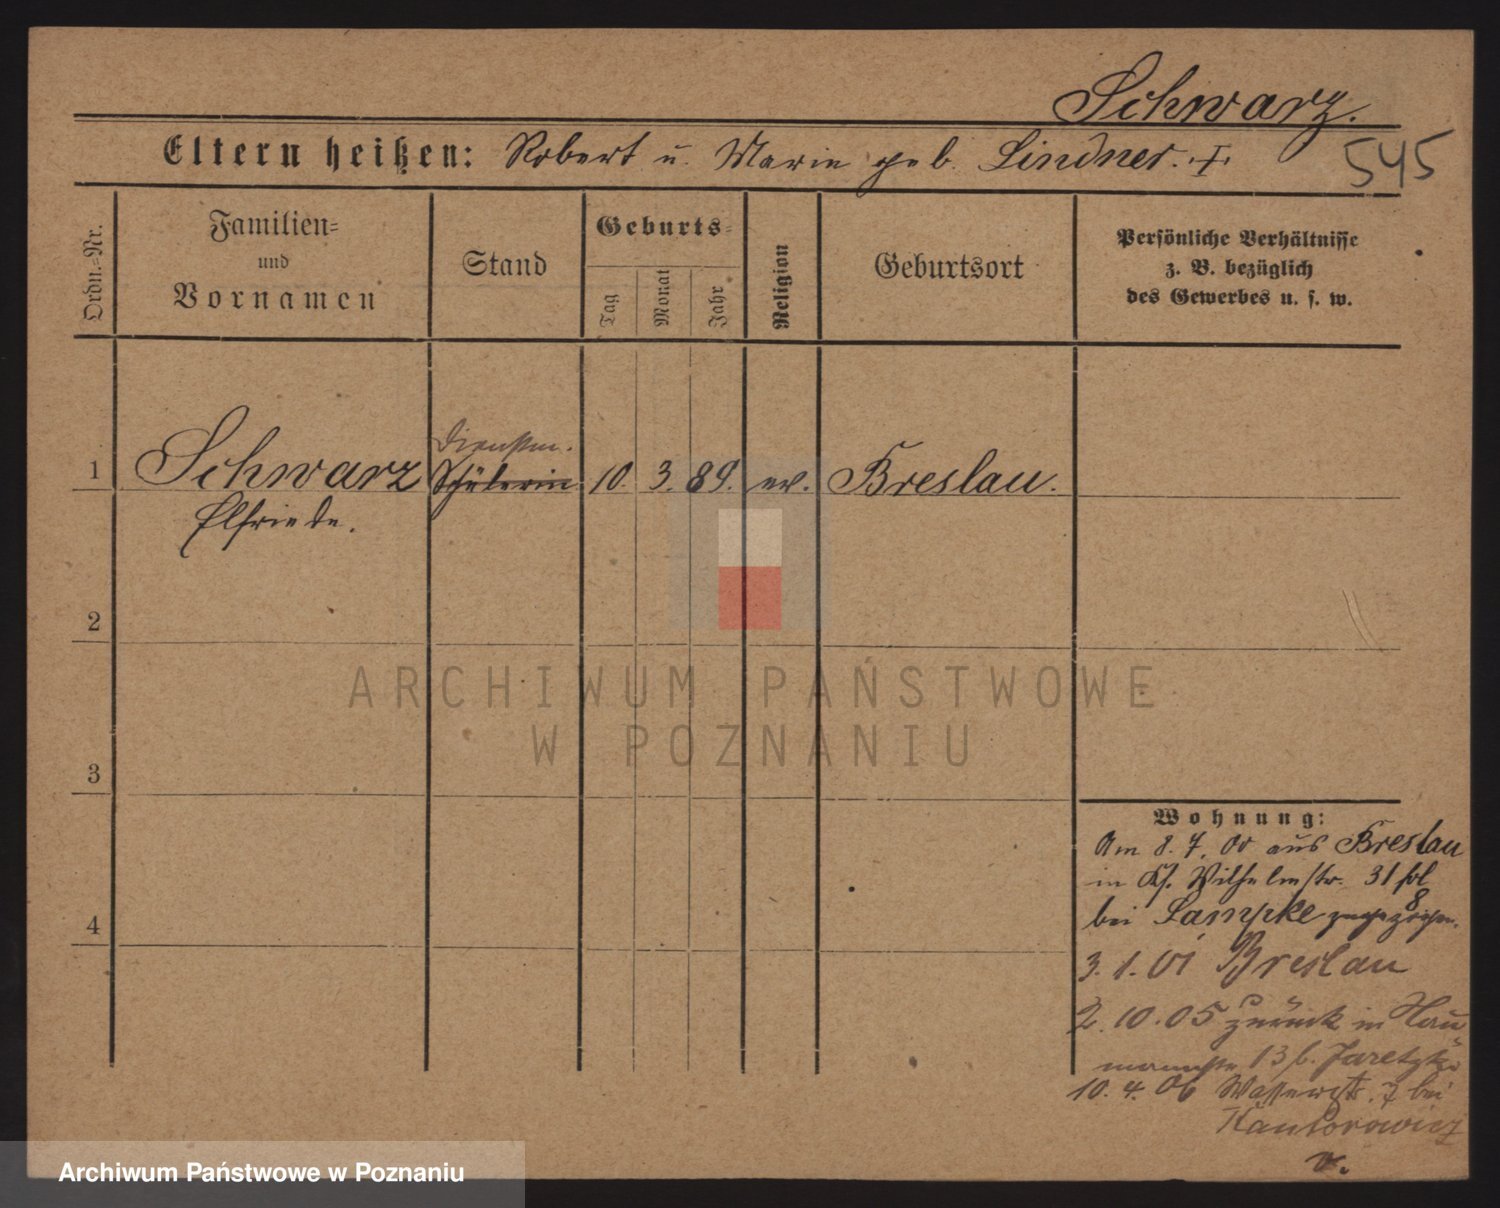 Schwarz.
Eltern heißen: Robert u. Marie geb. Lindner. †
545
Ordn.=Nr.
Familien= und Vornamen
Stand
Geburts=
Tag
Monat
Jahr
Religion
Geburtsort
Persönliche Verhältnisse
z. B. bezüglich
des Gewerbes u. s. w.
Dienstm.
1 Schwarz Schülerin 10. 3. 89. ev. Breslau.
Elfriede.
2
3
4
Wohnung:
Am 8. 7. 00 aus Breslau
in Wilhelmstr. 31
bei Lampke zugezogen.
3. 1. 01 Breslau
2. 10. 05 zurück in Nau
mannstr 13 b.
10. 4. 06 Wasserstr. 7 bei
Kantorowicz
v.
ARCHIWUM PAŃSTWOWE
W POZNANIU
Archiwum Państwowe w Poznaniu